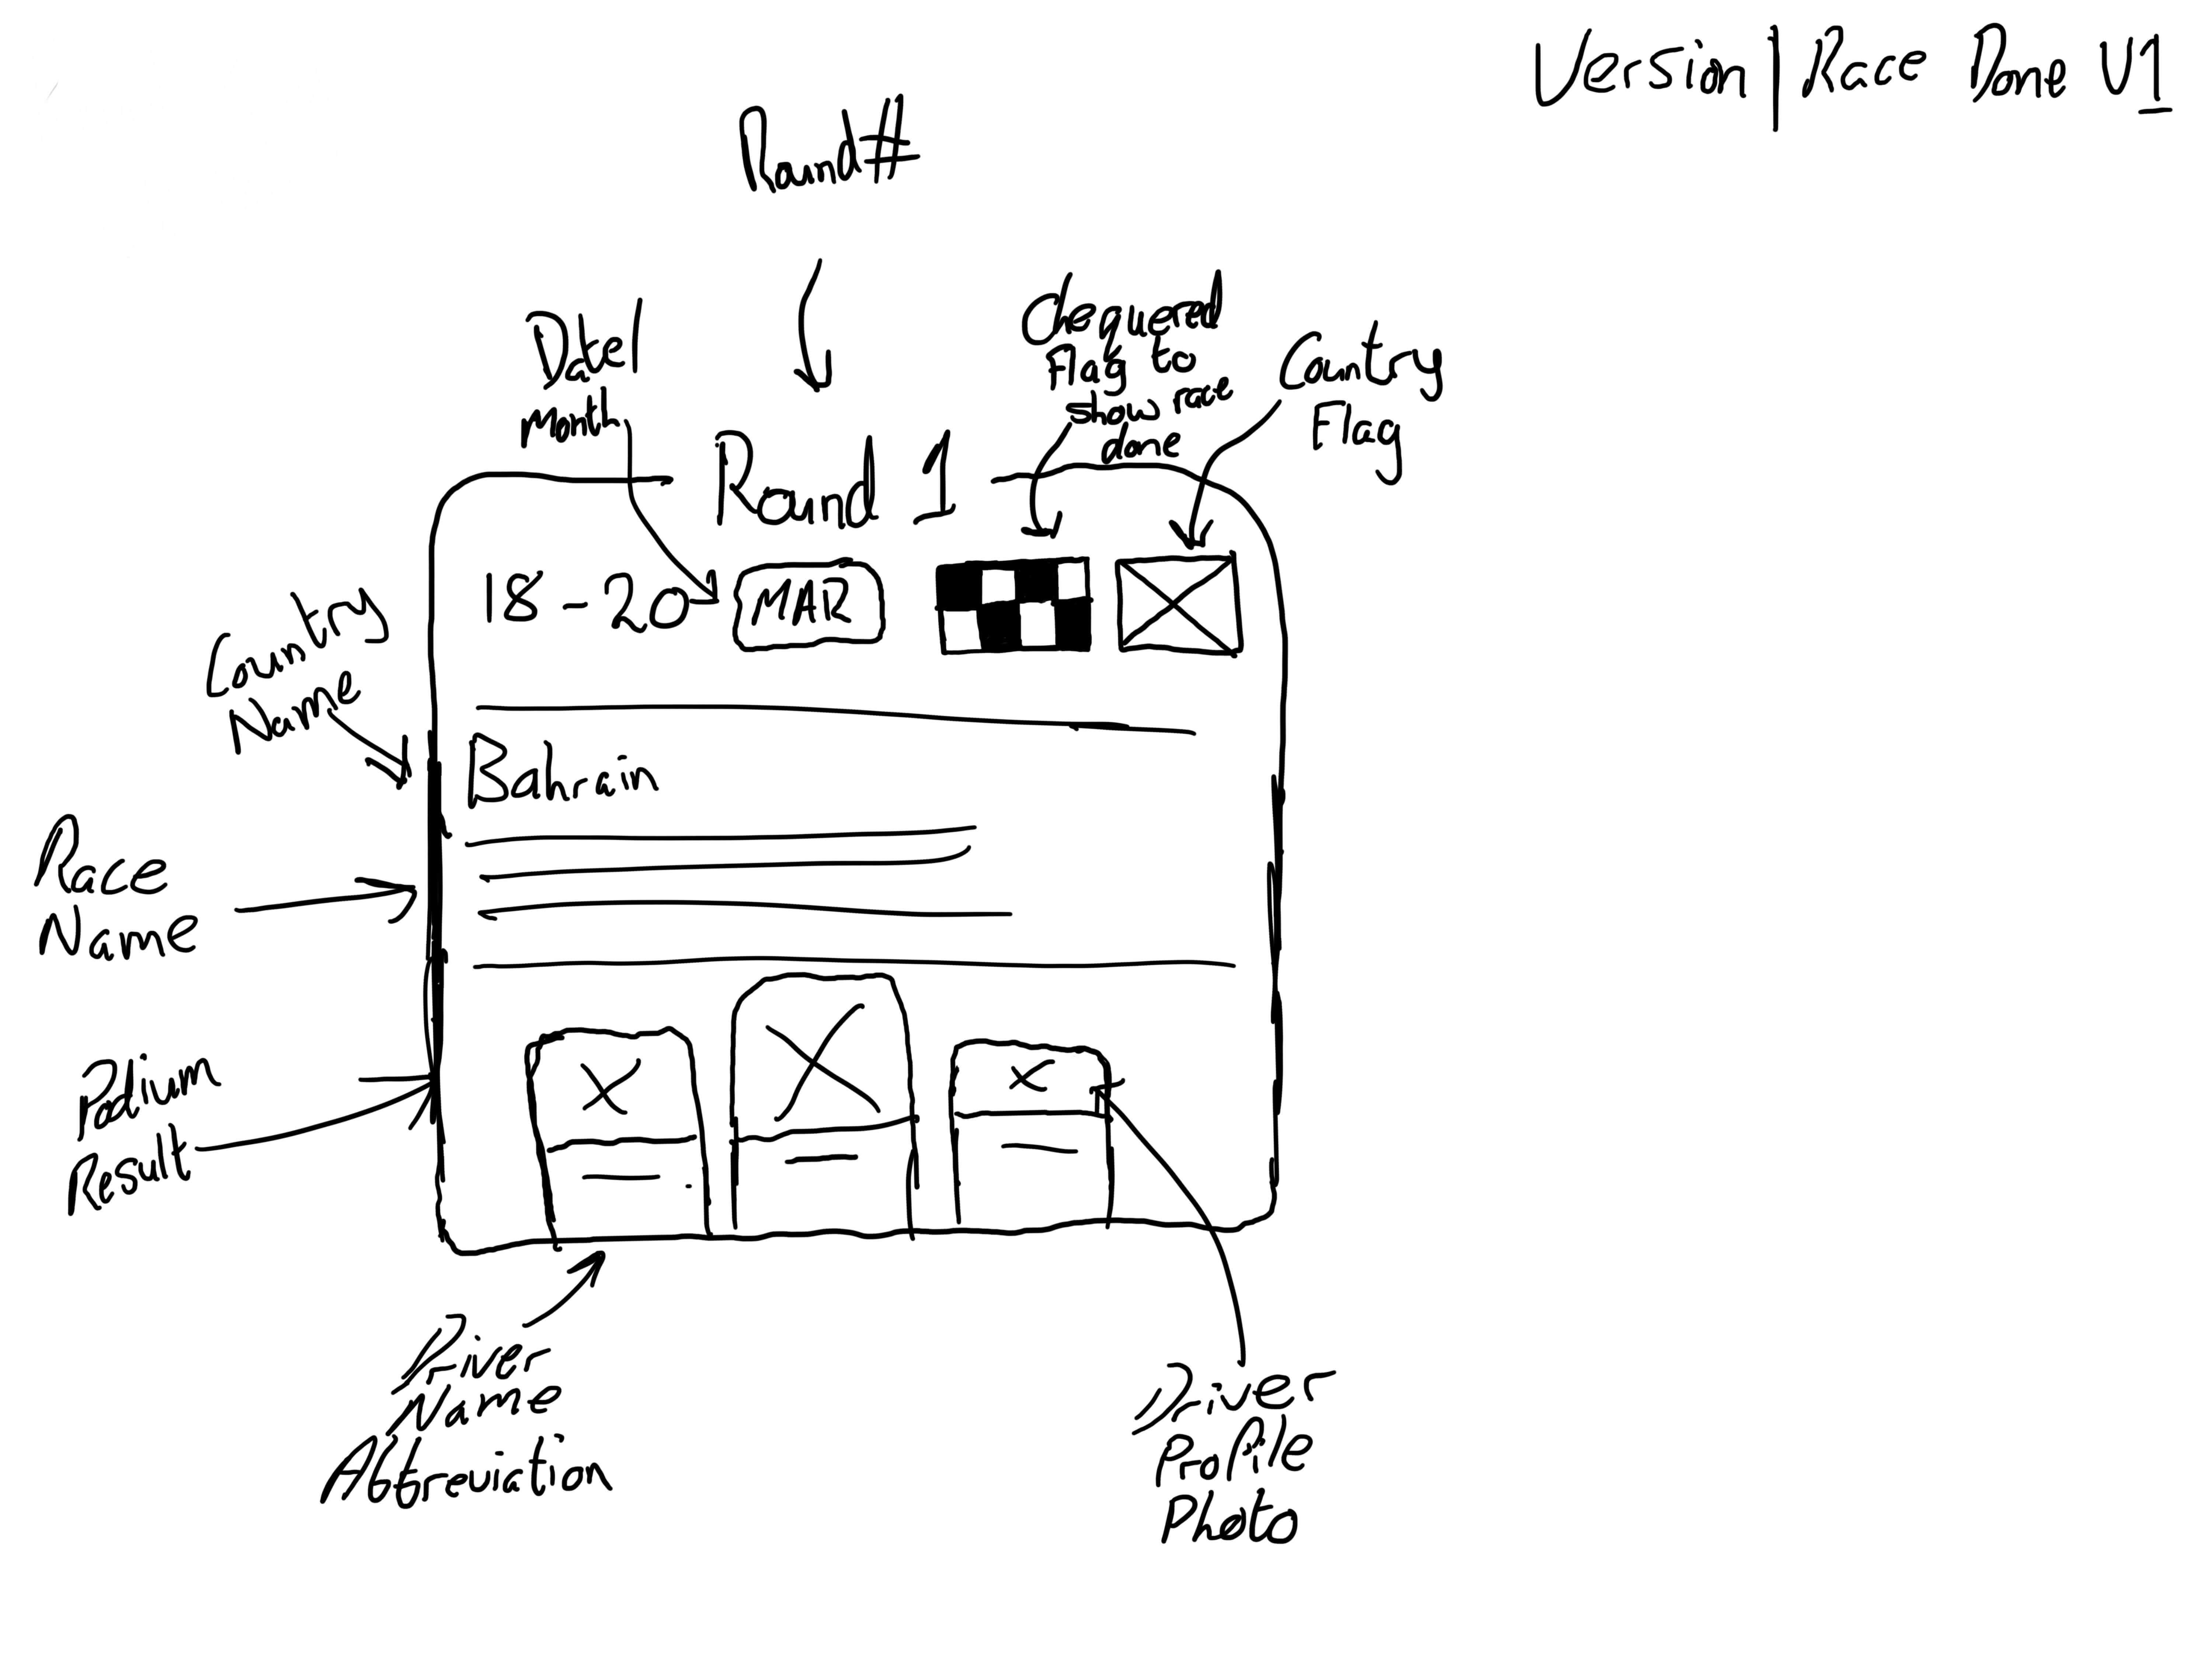 Version | Race Done V1
Round #
Date/
Month
Chequered
Flag to
show race
done
Country
Flag
Round 1
18-20 MAR
Country
Name
Bahrain
Race
Name
Podium
Result
Driver
Name
Abbreviation
Driver
Profile
Photo